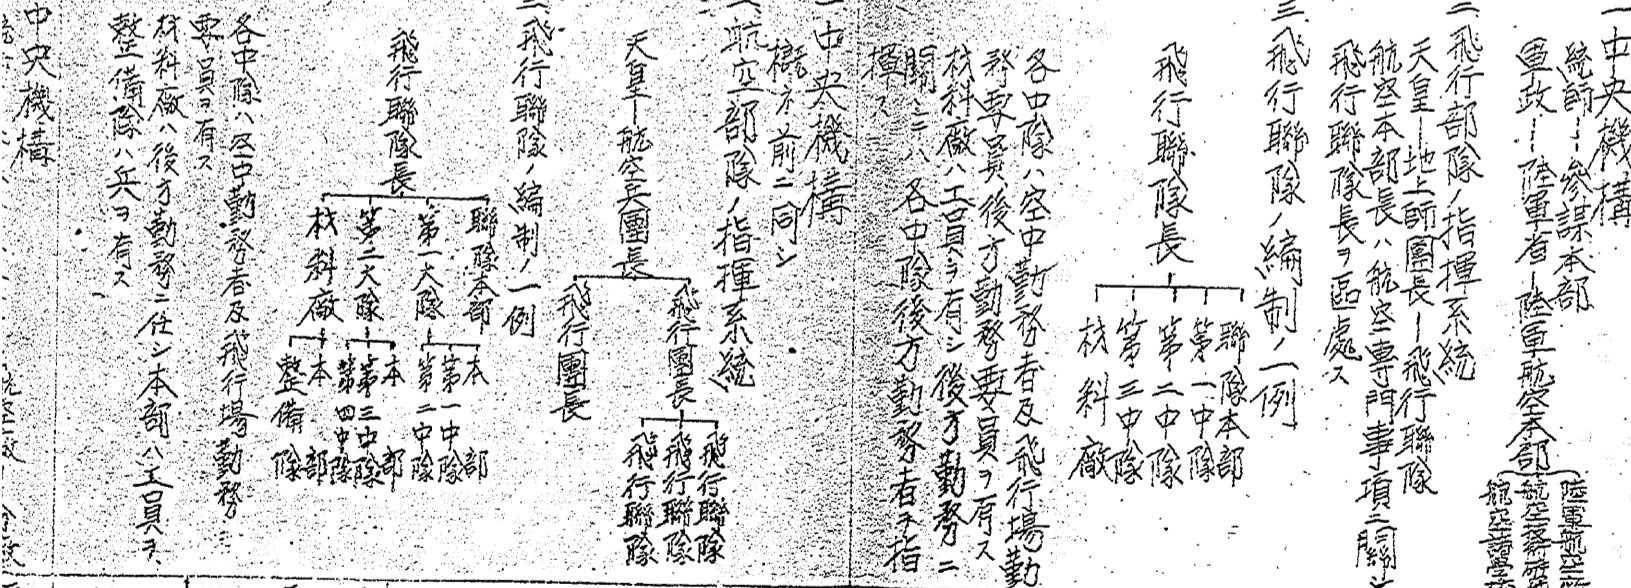 一中央機構
統帥ー參謀本部
軍政ー陸軍省ー陸軍航空本部
陸軍航空
航空
航空
二飛行部隊ノ指揮系統
天皇ー地上師團長ー飛行聯隊
航空本部長ハ航空專門事項ニ關シ
飛行聯隊長ヲ區處ス
三飛行聯隊ノ編制ノ一例
飛行聯隊長
聯隊本部
第一中隊
第二中隊
第三中隊
材料廠
各中隊ハ空中勤務者及飛行場勤
務要員後方勤務要員ヲ有ス
材料廠ハ工員ヲ有シ後方勤務ニ
關シテハ各中隊後方勤務者ヲ指
揮ス
一中央機構
概ネ前ニ同シ
二航空部隊ノ指揮系統
天皇ー航空兵團長
飛行團長
飛行聯隊
飛行聯隊
飛行聯隊
飛行團長
三飛行聯隊ノ編制ノ一例
飛行聯隊長
聯隊本部
第一大隊
本部
第一中隊
第二中隊
第二大隊
本部
第三中隊
第四中隊
材料廠
本部
整備隊
各中隊ハ空中勤務者及飛行場勤務
要員ヲ有ス
材料廠ハ後方勤務ニ任シ本部ハ工員ヲ
整備隊ハ兵ヲ有ス
中央機構